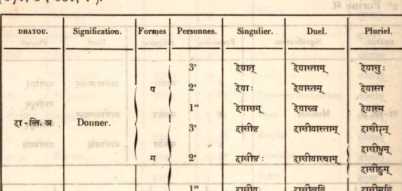 DHATOU. Signification. Formes Personnes. Singulier. Duel. Pluriel.
3ᵉ देयात् देयास्ताम् देयासुः
प 2ᵉ देयाः देयास्तम् देयास्त
1ʳᵉ देयासम् देयास्व देयास्म
दा - लि. अ Donner. 3ᵉ दासीष्ट दासीयास्ताम् दासीरन्
ग 2ᵉ दासीष्ठाः दासीयास्थाम्
1ʳᵉ दासीय दासीवहि दासीमहि